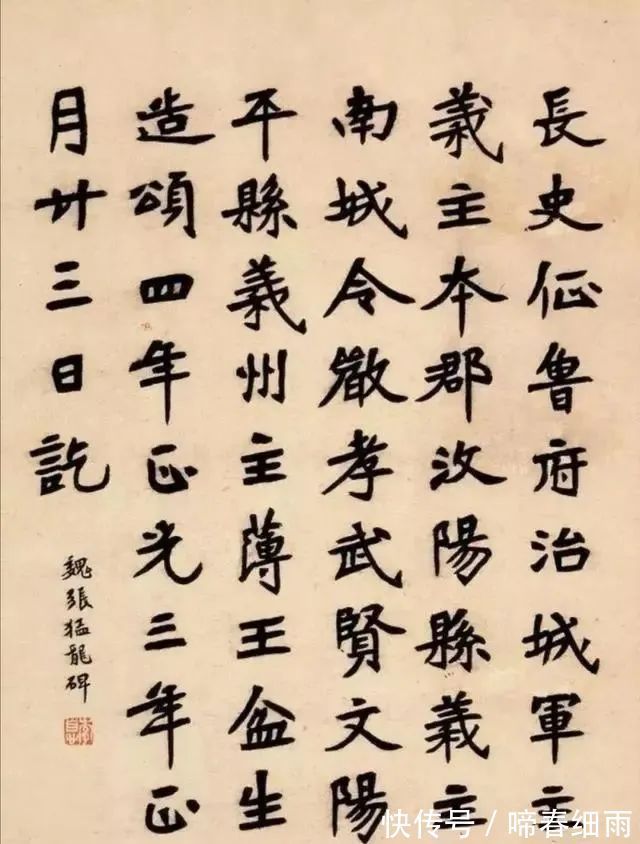 長史征魯府治城軍主
義主本郡汝陽縣義主
南城令孝武賢文陽
平縣義州主薄王盆生
造頌四年正光三年正
月廿三日訖
魏張猛龍碑
快传号 / 啼春细雨